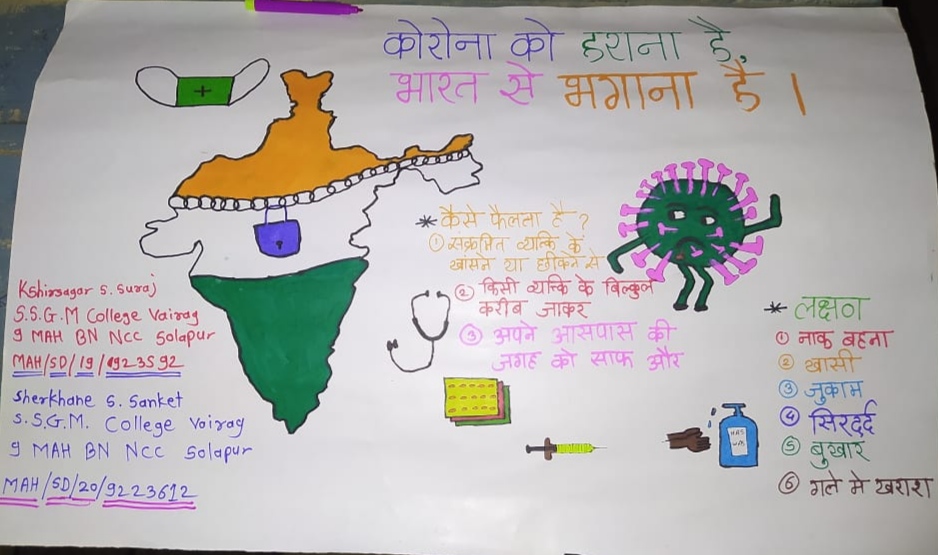 कोरोना को हराना है,
भारत से भगाना है ।
* कैसे फैलता है ?
① सक्रमित व्यक्ति के
खांसने या छीकने से
② किसी व्यक्ति के बिल्कुल
करीब जाकर
③ अपने आसपास की
जगह को साफ और
* लक्षण
① नाक बहना
② खासी
③ जुकाम
④ सिरदर्द
⑤ बुखार
⑥ गले मे खराश
Kshirsagar S. Suraj
S.S.G.M College Vairag
9 MAH BN NCC Solapur
MAH/SD/19/1923592
Sherkhane S. Sanket
S.S.G.M. College Vairag
9 MAH BN NCC Solapur
MAH/SD/20/9223612